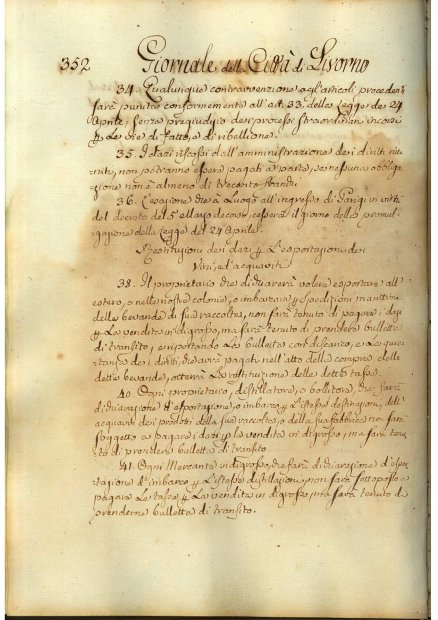 352 Giornale della Città di Livorno
34. Qualunque contravvenzione agl'articoli precedenti
sarà punita conformemente all'art. 33. della Legge de 24
Aprile, senza pregiudizio dei processi straordinari incorsi
p le vie di fatto, e di ribellione.
35. I dazi riscossi dall'amministrazione dei diritti riu-
niti, non potranno essere pagati a parte, se nessuna obbliga-
zione non è almeno di trecento franchi.
36. L'evasione che à luogo all'ingresso di Parigi in virtù
del decreto del 5 decorso, cesserà il giorno della promul-
gazione della Legge del 24 Aprile.
Restituzioni dei dazi p l'esportazione dei
Vini, ed'acquavite
38. Il proprietario che dichiarerà volere esportare all'
estero, o nelle nostre colonie, o imbarcare p spedizioni marittime
delle bevande di sua raccolta, non sarà tenuto di pagare i dazi
p la vendita in digrosso, ma sarà tenuto di prendere bulletta
di transito, e riportando la bulletta con discarico, e la quie-
tanza dei diritti, che avrà pagati nell'atto della compra delle
dette bevande, otterrà la restituzione delle dette tasse.
40. Ogni proprietario, distillatore, o bollitore, che farà
dichiarazione d'esportazione, o imbarco p l'istesse destinazioni, dell'
acquavite dei prodotti della sua raccolta, o della sua fabbrica non sarà
soggetto a pagare i dazi p la vendita in digrosso, ma sarà tenu-
to di prendere bulletta di transito.
41. Ogni Mercante in digrosso, che farà dichiarazione d'espor-
tazione d'imbarco p l'istesse destinazioni, non sarà sottoposto a
pagare le tasse p la vendita in digrosso, ma sarà tenuto di
prenderne bulletta di transito.